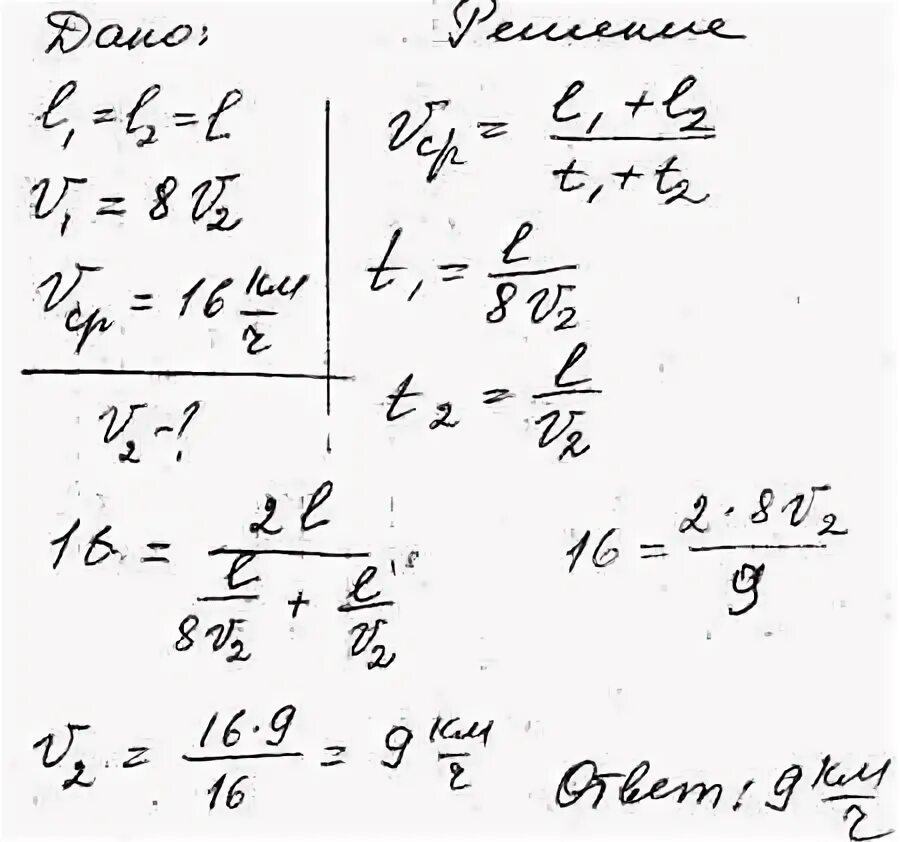 Дано:
l₁ = l₂ = l
v₁ = 8v₂
vср = 16 км/ч
v₂ - ?
Решение
vср = (l₁ + l₂)/(t₁ + t₂)
t₁ = l/(8v₂)
t₂ = l/v₂
16 = 2l/(l/(8v₂) + l/v₂)
16 = (2·8v₂)/9
v₂ = (16·9)/16 = 9 км/ч
Ответ: 9 км/ч